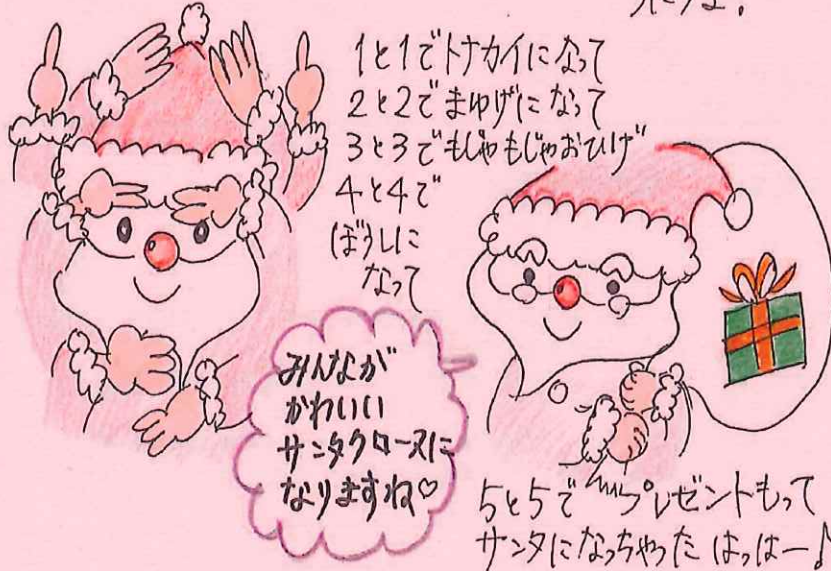 1と1でトナカイになって
2と2でまゆげになって
3と3でもじゃもじゃおひげ
4と4で
ぼうしに
なって
みんなが
かわいい
サンタクロースに
なりますね♡
5と5でプレゼントもって
サンタになっちゃった はっはー♪